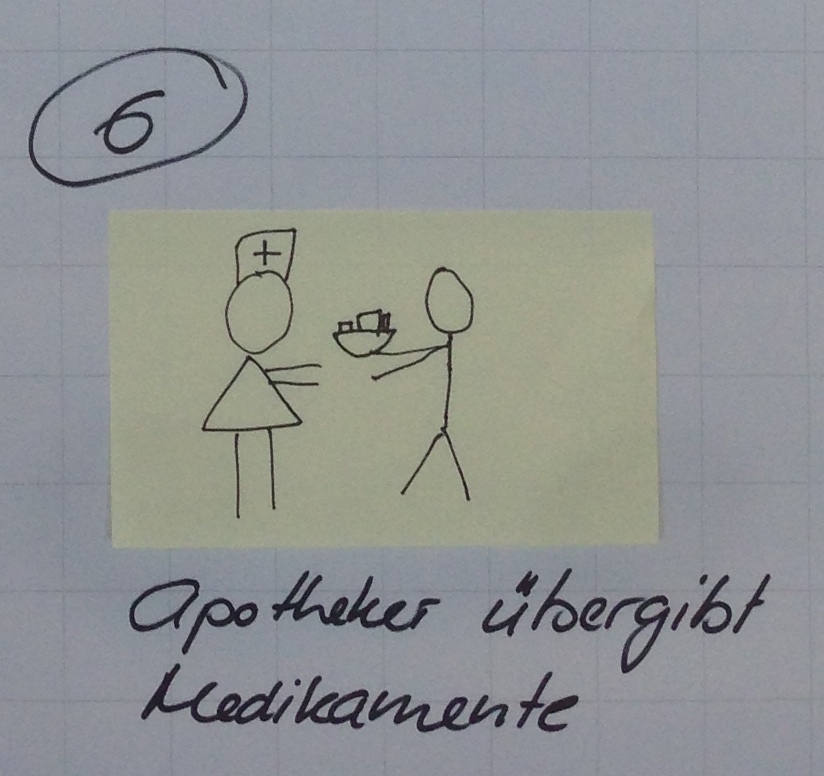 6
Apotheker übergibt
Medikamente